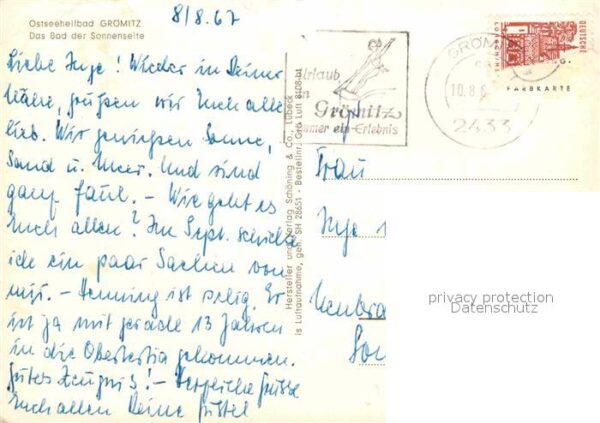 Ostseeheilbad GRÖMITZ
Das Bad der Sonnenseite
8/8.67
Liebe Inge! Wieder in Deiner
Nähe, grüßen wir Euch alle
lieb. Wir genießen Sonne,
Sand u. Meer. Und sind
ganz faul. – Wie geht es
Euch allen? Im Sept. schicke
ich ein paar Sachen von
mir. – Henning ist selig. Er
ist ja mit gerade 13 Jahren
in die Obertertia gekommen.
Gutes Zeugnis! – Herzliche Grüsse
Euch allen Deine Gustel
Hersteller und Verlag Schöning & Co., Lübeck
is Luftaufnahme, gen. SH 28651 - Bestellnr. Grö Luft 8108
Urlaub
in
Grömitz
immer ein Erlebnis
GRÖMITZ
10.8.6
2433
DEUTSCHE
FARBKARTE
Frau
Inge
Son
privacy protection
Datenschutz